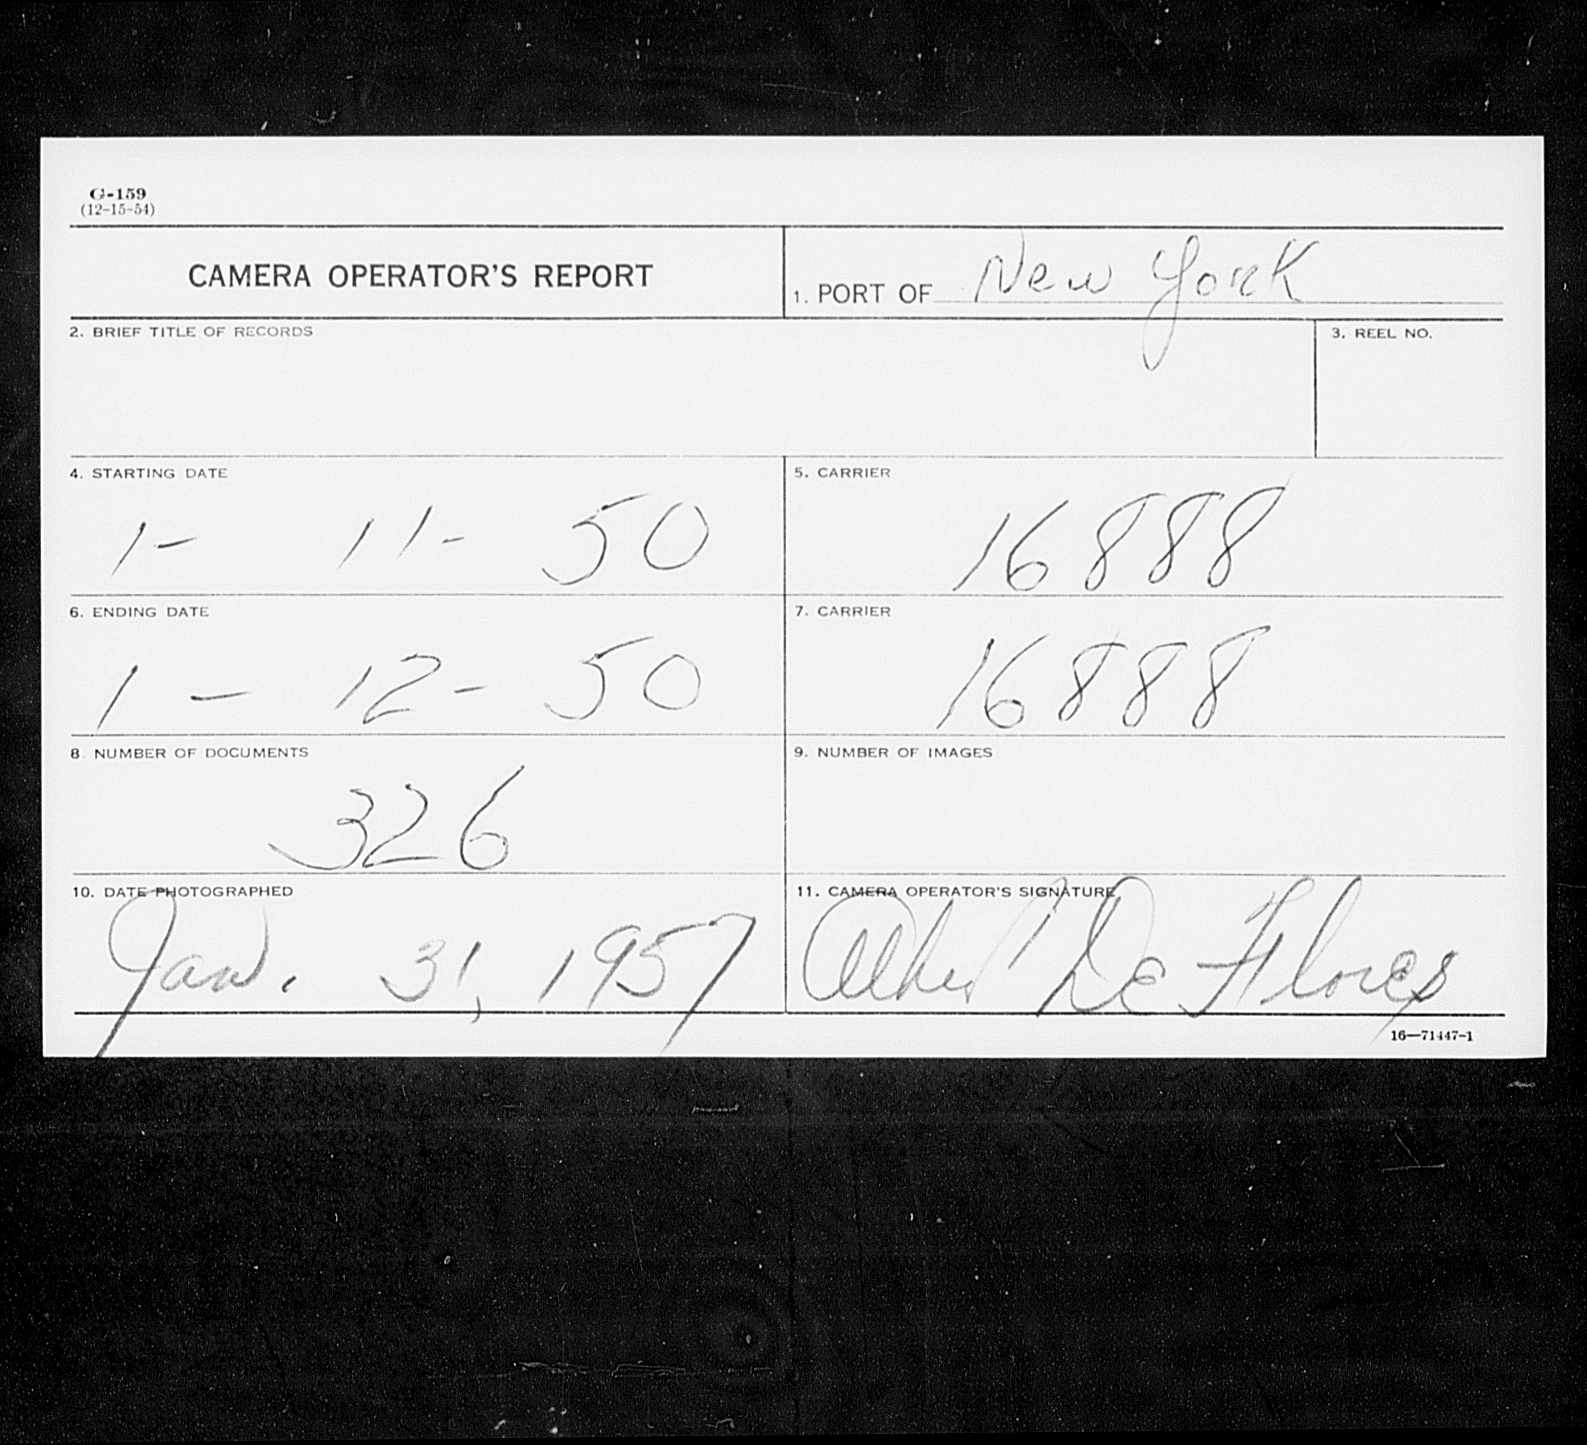 G-159
(12-15-54)
CAMERA OPERATOR'S REPORT
1. PORT OF New York
2. BRIEF TITLE OF RECORDS
3. REEL NO.
4. STARTING DATE
1- 11- 50
5. CARRIER
16888
6. ENDING DATE
1 - 12- 50
7. CARRIER
16888
8. NUMBER OF DOCUMENTS
326
9. NUMBER OF IMAGES
10. DATE PHOTOGRAPHED
Jan. 31, 1957
11. CAMERA OPERATOR'S SIGNATURE
De Flores
16—71447-1